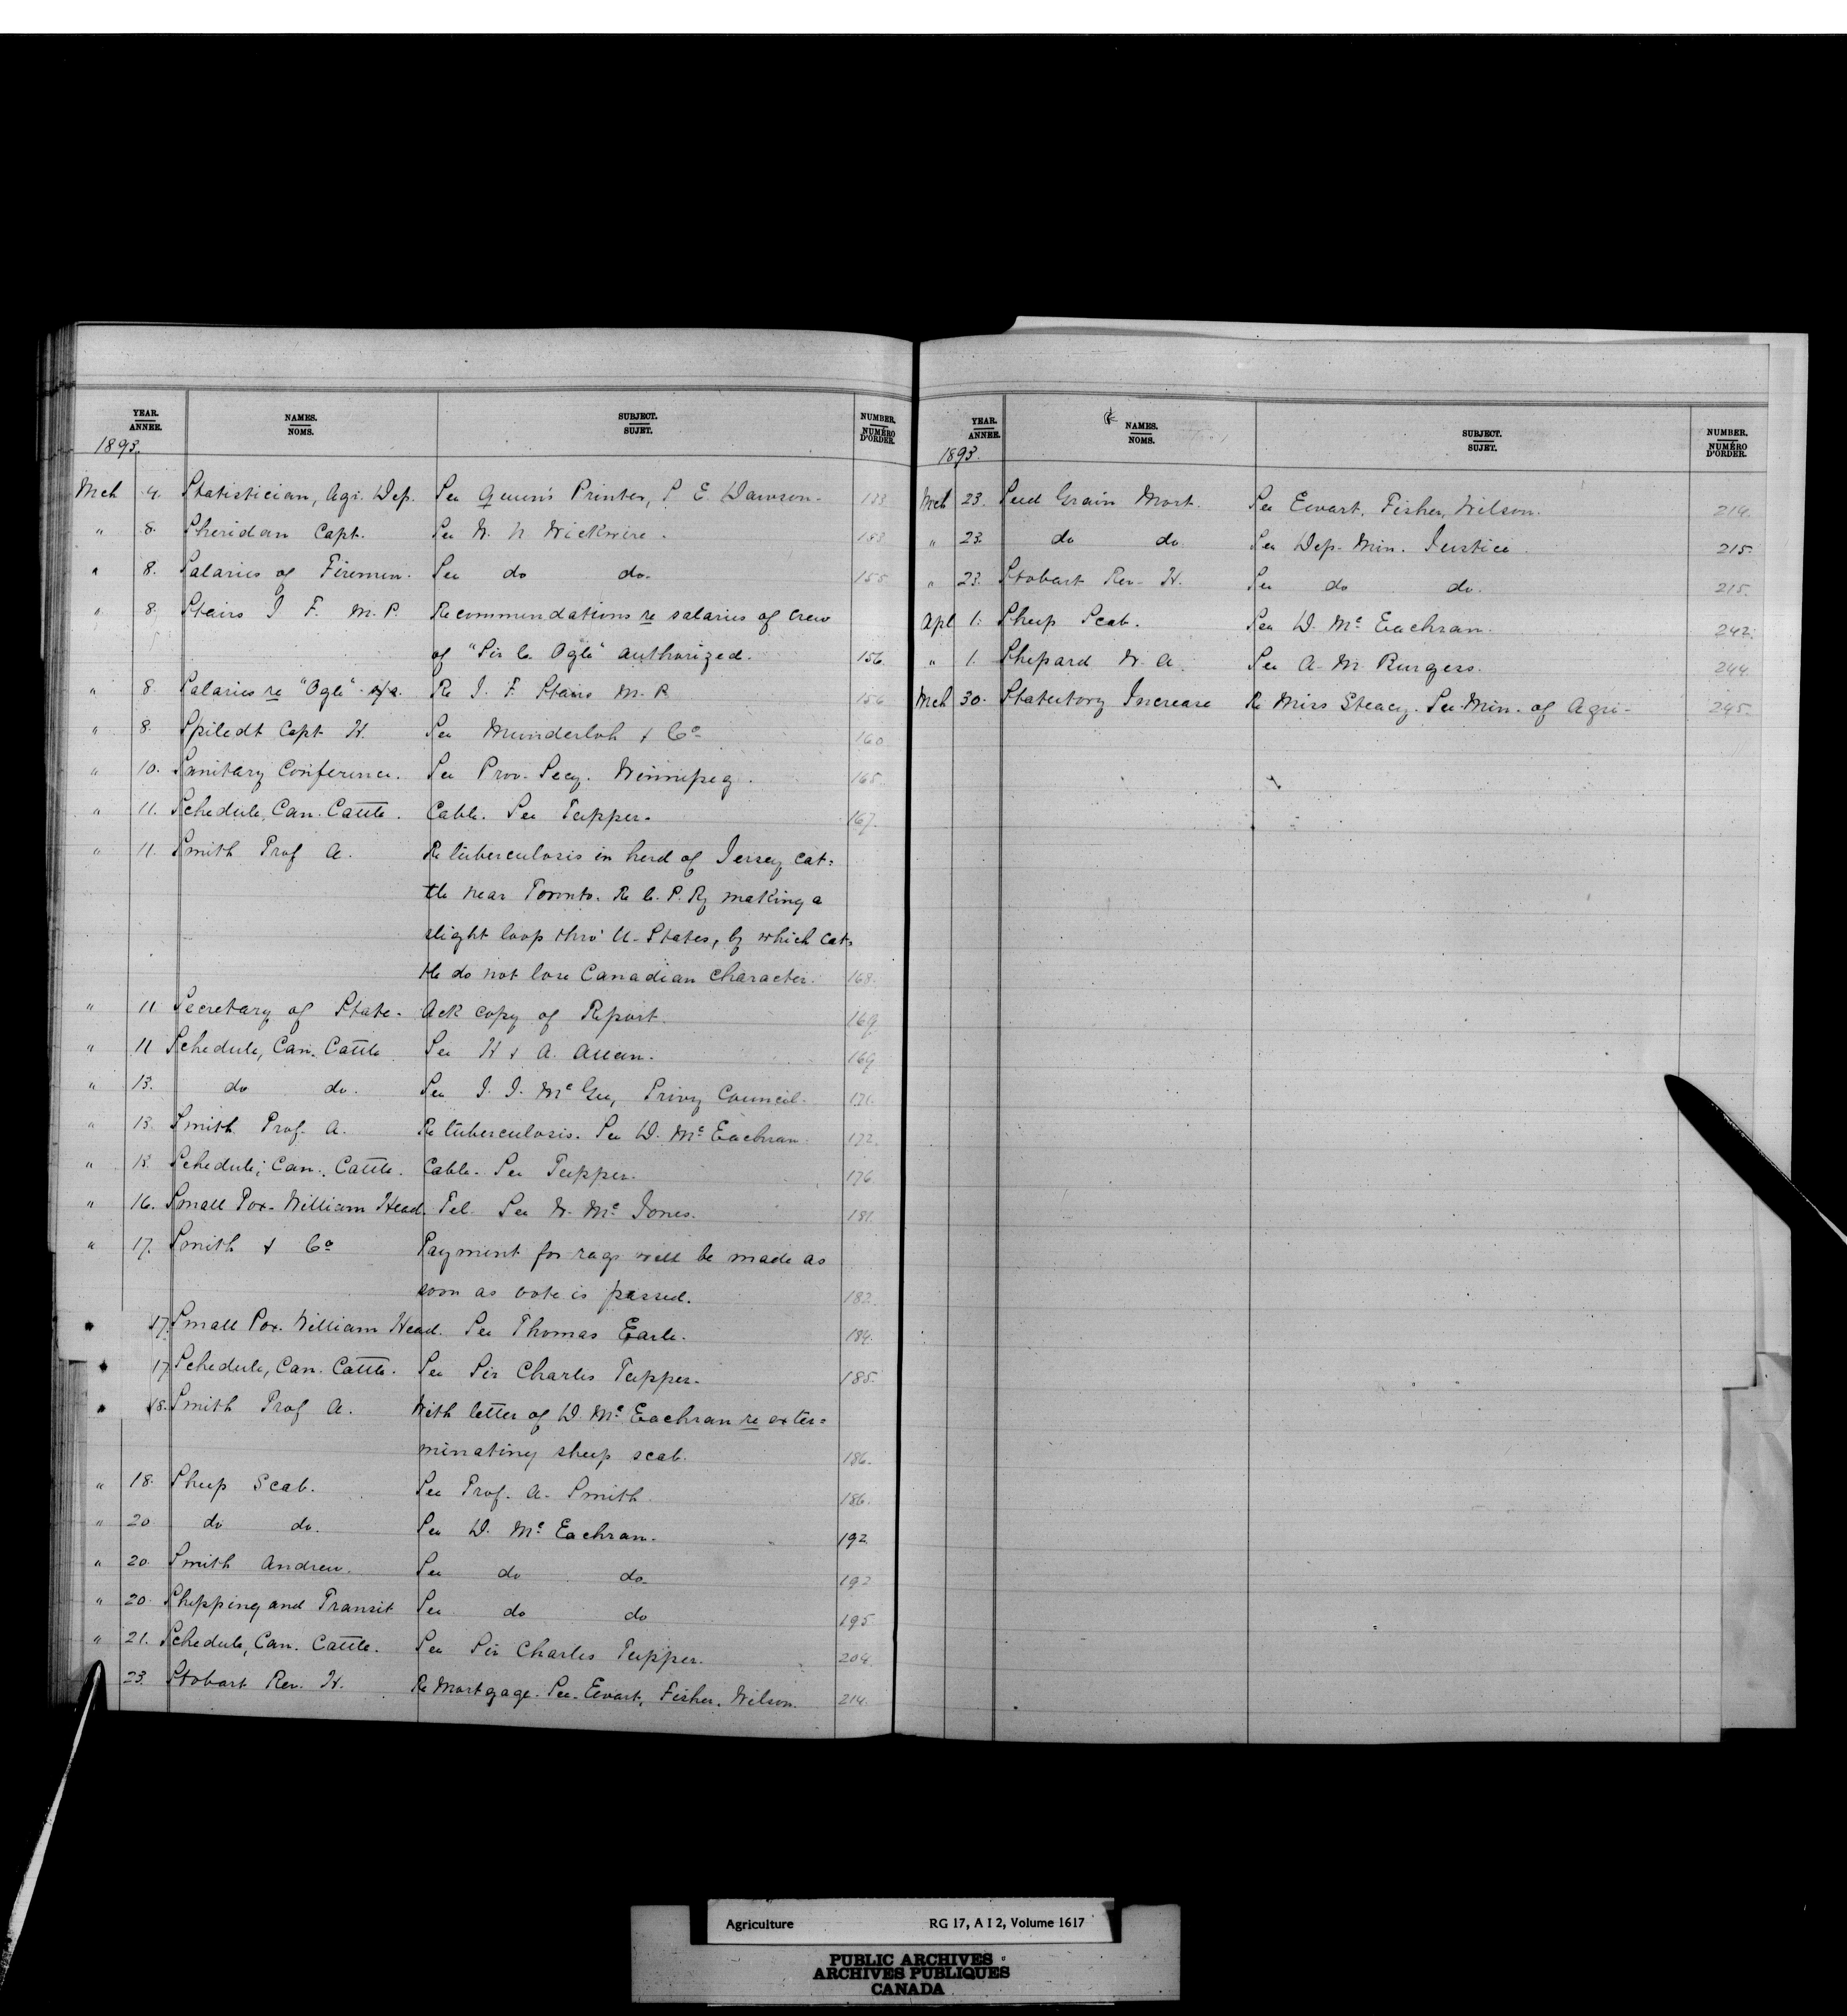 YEAR. ANNEE. NAMES. NOMS. SUBJECT. SUJET. NUMBER. NUMÉRO D'ORDER.
1893.
Mch 4. Statistician, Agri. Dep. See Queen's Printer, S. E. Dawson. 133
" 8. Sheridan Capt. See W. N. Wickwire. 153
" 8. Salaries of Firemen. See do do. 155
" 8. Stairs J. F. M.P. Recommendations re salaries of crew
of "Sir C. Ogle" authorized. 156.
" 8. Salaries re "Ogle" Re J. F. Stairs M.P. 156
" 8. Spiledt Capt H. See Munderloh & Co 160
" 10. Sanitary Conference. See Prov. Secy. Winnipeg. 165.
" 11. Schedule, Can. Cattle. Cable. See Tupper. 167.
" 11. Smith Prof A. Re tuberculosis in herd of Jersey cat=
tle near Toronto. Re C. P. Ry making a
slight loop thro' U. States, by which cat=
tle do not lose Canadian character. 168.
" 11 Secretary of State. Ack copy of Report. 169.
" 11 Schedule, Can. Cattle See H & A. Allan. 169
" 13. do do. See J. J. McGee, Privy Council. 171.
" 13. Smith Prof. A. Re tuberculosis. See D. McEachran. 172.
" 15. Schedule, Can. Cattle. Cable. See Tupper. 176
" 16. Small Pox. William Head. Tel. See W. Mc Jones. 181.
" 17. Smith & Co Payment for rags will be made as
soon as vote is passed. 182.
" 17. Small Pox. William Head. See Thomas Earle. 184.
" 17 Schedule, Can. Cattle. See Sir Charles Tupper. 185.
" 18. Smith Prof A. With letter of D. McEachran re exter=
minating sheep scab. 186.
" 18. Sheep Scab. See Prof. A. Smith. 186.
" 20 do do. See D. McEachran. 192.
" 20. Smith Andrew. See do do. 192
" 20. Shipping and Transit See do do 195.
" 21. Schedule, Can. Cattle. See Sir Charles Tupper. 204.
23. Stobart Rev. H. Re Mortgage. See Ewart, Fisher, Wilson. 214.
YEAR. ANNEE. NAMES. NOMS. SUBJECT. SUJET. NUMBER. NUMÉRO D'ORDER.
1893.
Mch 23. Seed Grain Mort. See Ewart, Fisher, Wilson. 214.
" 23. do do. See Dep. Min. Justice. 215.
" 23. Stobart Rev. H. See do do. 215.
Apl 1. Sheep Scab. See D. McEachran. 242.
" 1. Shepard W. A. See A. M. Burgess. 244.
Mch 30. Statutory Increase Re Miss Steacy. See Min. of Agri- 245.
Agriculture RG 17, A I 2, Volume 1617
PUBLIC ARCHIVES
ARCHIVES PUBLIQUES
CANADA